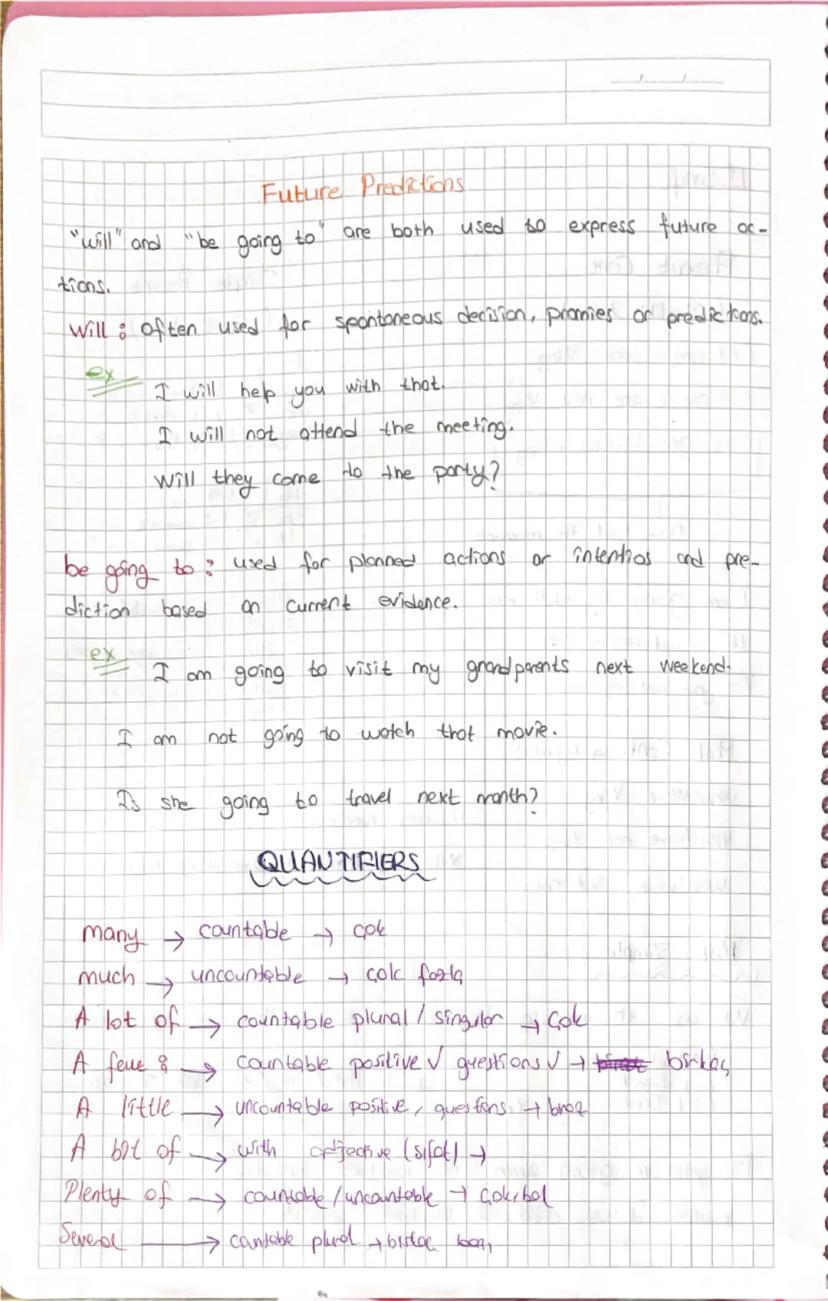 Future Predictions
"will" and "be going to" are both used to express future ac-
tions.
Will : often used for spontaneous decision, promies or predictions.
ex
I will help you with that.
I will not attend the meeting.
Will they come to the party?
be going to : used for planned actions or intentios and pre-
diction based on current evidence.
ex
I am going to visit my grandparents next weekend.
I am not going to watch that movie.
Is she going to travel next month?
QUANTIFIERS
many → countable → çok
much → uncountable → çok fazla
A lot of → countable plural / singular → çok
A few : → countable positive √ questions √ → birkaç
A little → uncountable positive, questions → biraz
A bit of → with adjective (sıfat) →
Plenty of → countable / uncountable → çok/bol
Several → countable plural →